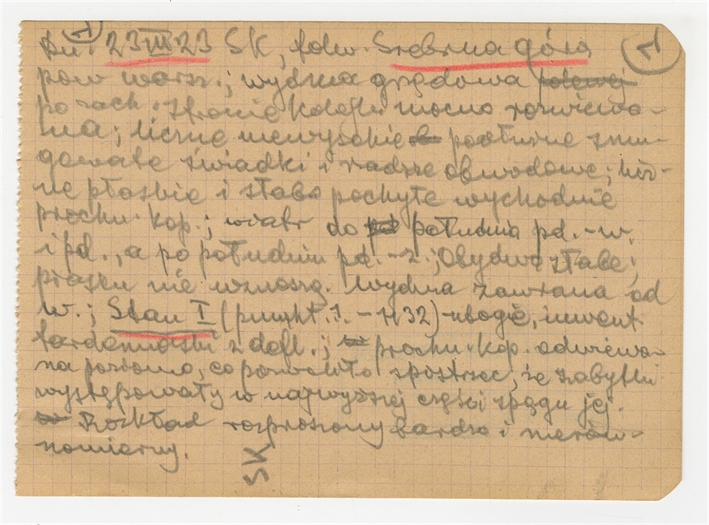 1
Dn. 23 III 23 SK, folw. Srebrna góra 1
pow. warsz.; wydma grzędowa
po zach. stronie kolejki mocno rozwiewa-
na; liczne niewysokie podłużne smu-
gowate świadki i rzadsze obwodowe; licz-
ne płaskie i słabo pochyłe wychodnie
próchn. kop.; wiatr do południa pd.-w.
i pd., a po południu pd.-z.; Obydwa słabe;
piasku nie wznoszą. Wydma zawiana od
w.; Stan I (punkt. 1. – 32) – ubogie, inwent.
z defl.; próchn. kop. odwiewa-
na poziomo, co pozwoliło spostrzec, że zabytki
występowały w najwyższej części spągu jej.
Rozkład rozproszony bardzo i nierów-
nomierny.
SK